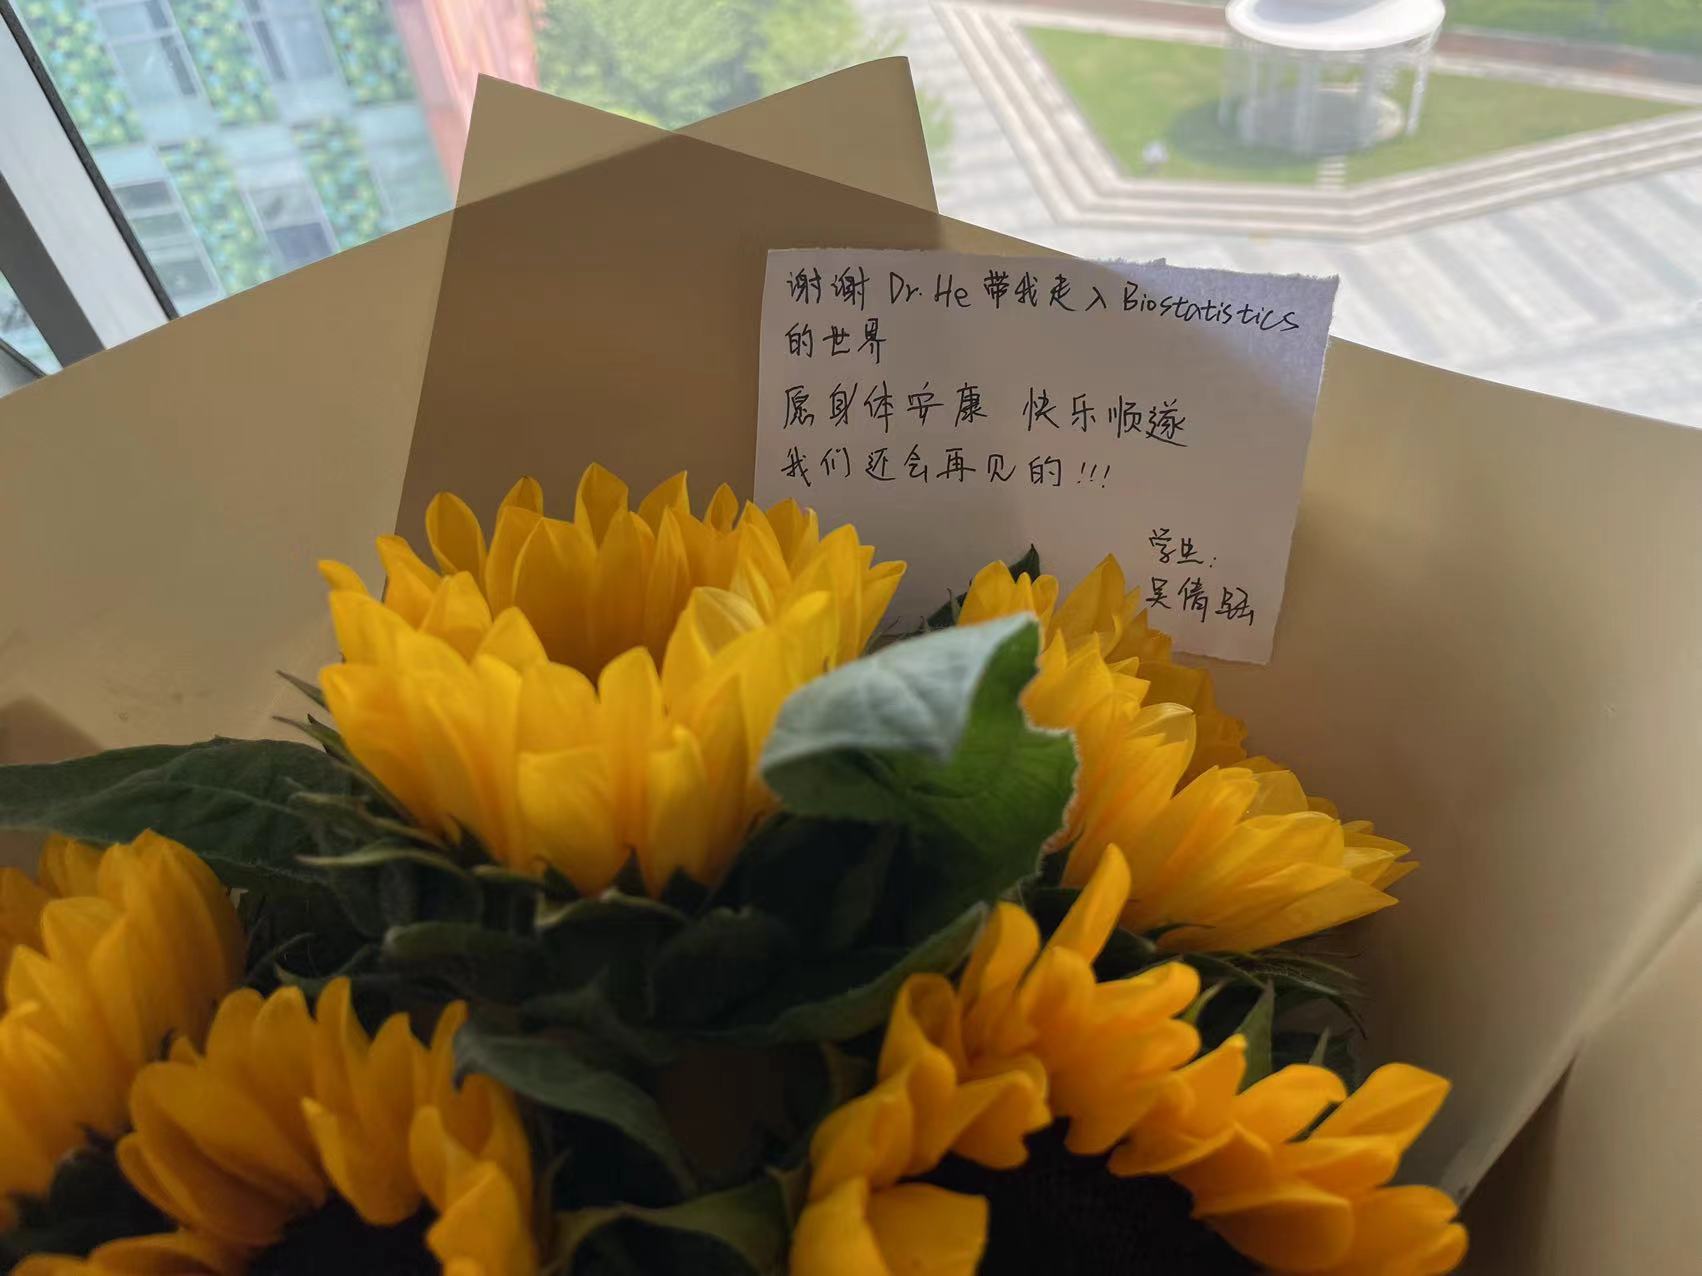 谢谢 Dr. He 带我走入 Biostatistics
的世界
愿身体安康 快乐顺遂
我们还会再见的!!!
学生:
吴倩